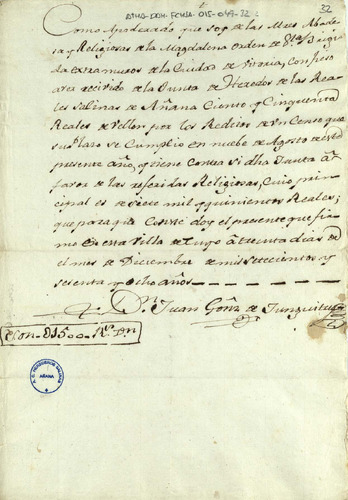 ATHA-DOH-FCHIA-015-049-32
32
Como Apoderado que soy de las Mres Abade
sa y Religiosas de la Magdalena orden de Sta Brigi
da extramuros de la Ciudad de Vitoria, confieso
aver recivido de la Junta de Herederos de las Rea
les Salinas de Añana Ciento y Cinquenta
Reales de Vellon por los Reditos de Un Censo que
su plazo se Cumplio en nuebe de Agosto de este
presente año, que tiene contra si dha Junta á
favor de las referidas Religiosas, Cuio prin
cipal es de siete mil y quinientos Reales;
y para que Conste doy el presente que fir
mo en esta Villa de á treinta dias de
el mes de Diciembre de mil setecientos y
sesenta y ocho años
Dn Juan Gonz de Junguitu
Son 0150 Rs Vn
AÑANA